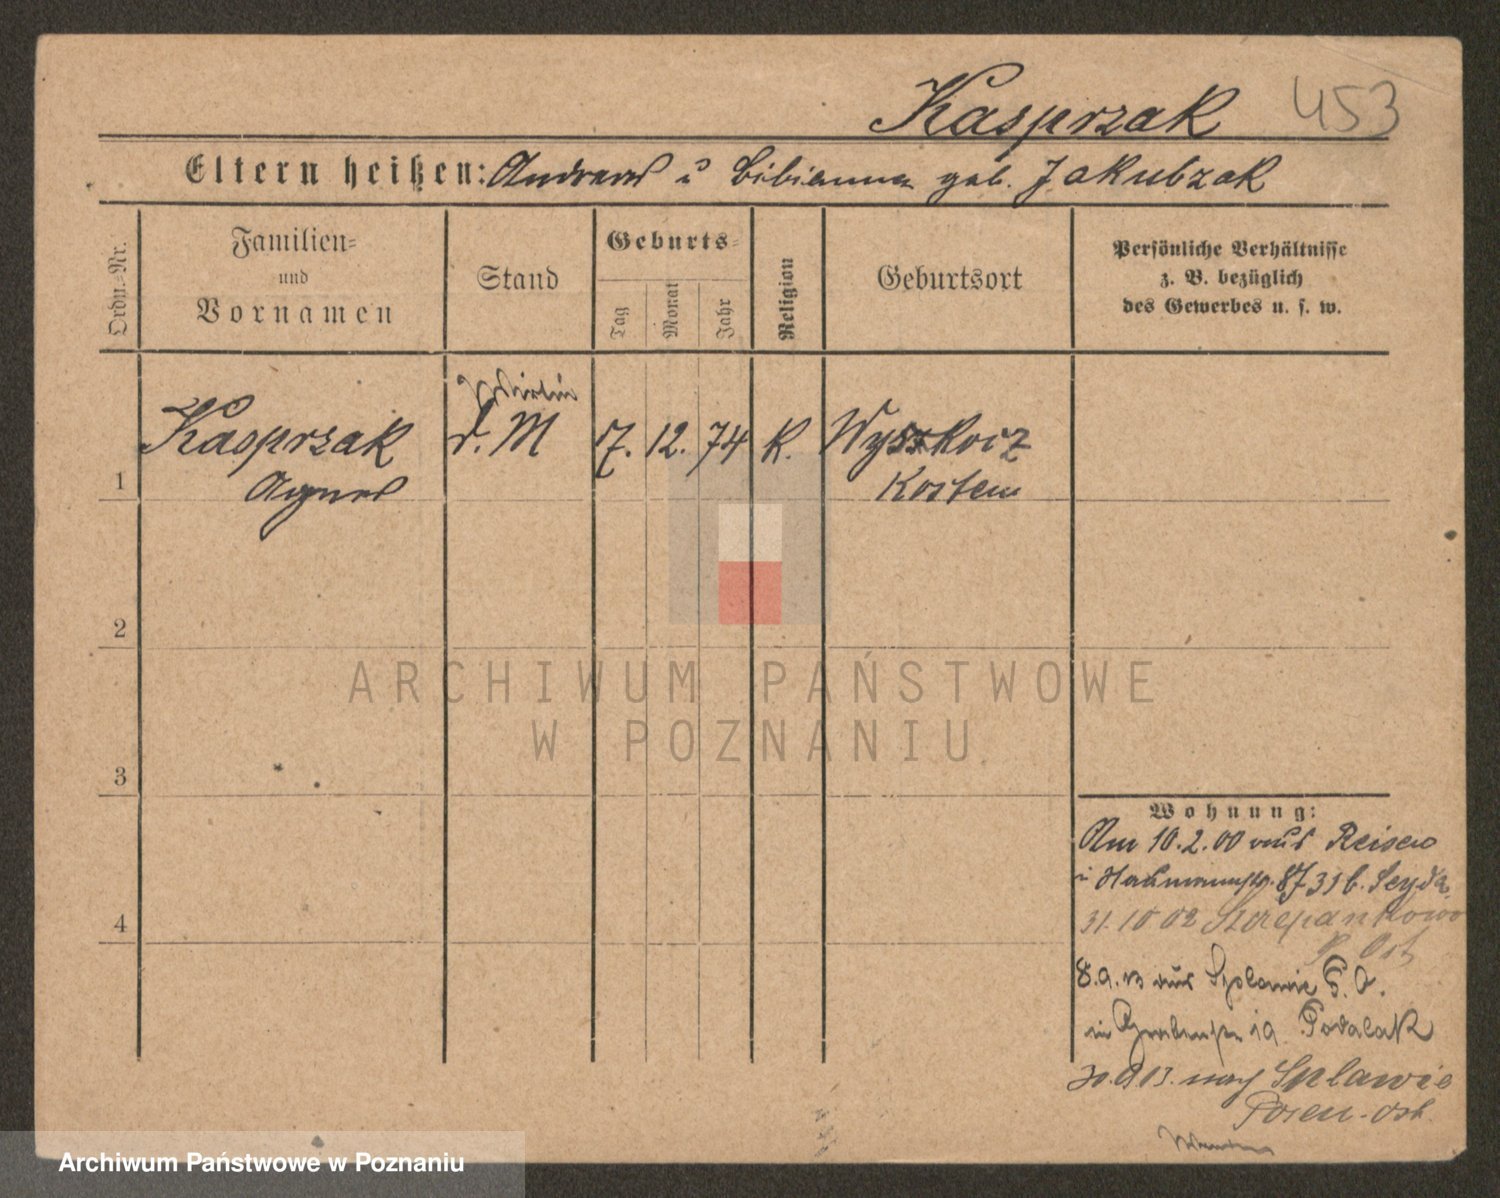 Kasprzak 453
Eltern heißen: Andreas u Bibianna geb. Jakubzak
Ordn.-Nr.
Familien-
und
Vornamen
Stand
Geburts-
Tag
Monat
Jahr
Religion
Geburtsort
Persönliche Verhältnisse
z. B. bezüglich
des Gewerbes u. s. w.
Wirtin
1 Kasprzak d. M 17. 12. 74 K.
Agnes Kosten
2
3
4
ARCHIWUM PAŃSTWOWE
W POZNANIU
Wohnung:
Am 10.2.00 aus Reisen
b. Seyda
31.10 02 Szczepankowo
P. Ost
8.9.13 aus P. O.
in Grabenstr 19
30.9 13. nach Splawie
Posen-Ost.
Archiwum Państwowe w Poznaniu